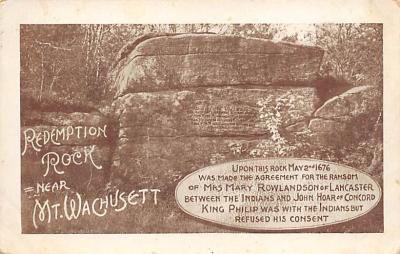 REDEMPTION
ROCK
NEAR
MT. WACHUSETT
UPON THIS ROCK MAY 2ND 1676
WAS MADE THE AGREEMENT FOR THE RANSOM
OF MRS MARY ROWLANDSON OF LANCASTER
BETWEEN THE INDIANS AND JOHN HOAR OF CONCORD
KING PHILIP WAS WITH THE INDIANS BUT
REFUSED HIS CONSENT